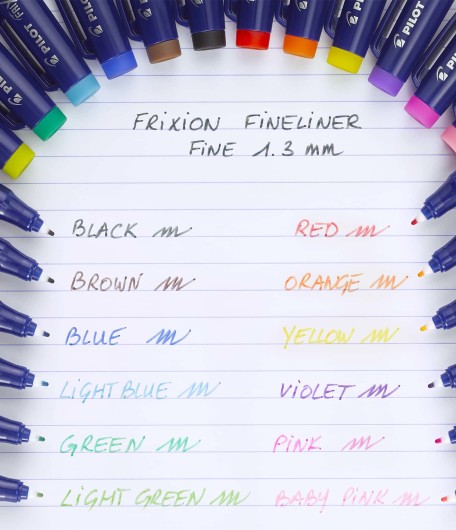 PILOT
PILOT
PILOT
PILOT
PILOT
FRIXION FINELINER
FINE 1.3 mm
BLACK
RED
BROWN
ORANGE
BLUE
YELLOW
LIGHT BLUE
VIOLET
GREEN
PINK
LIGHT GREEN
BABY PINK